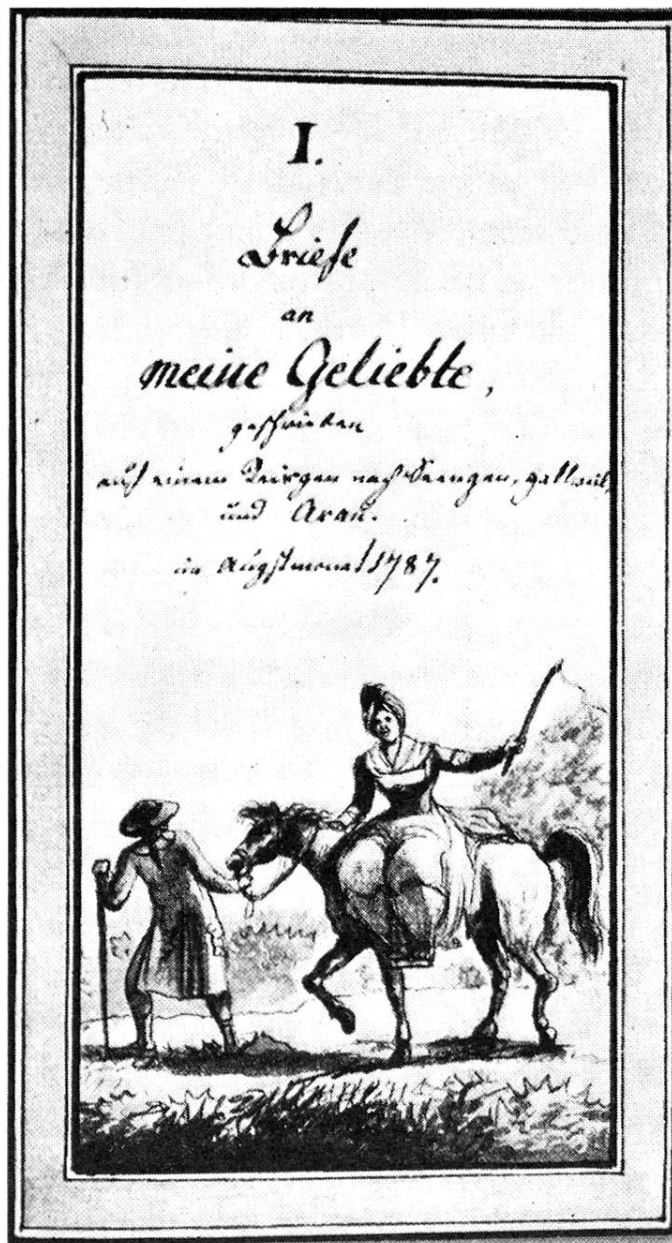 I.
Briefe
an
meine Geliebte,
geschrieben
auf einem Reisgen nach Seengen, Hallwil,
und Arau.
im Augstmonat 1787.